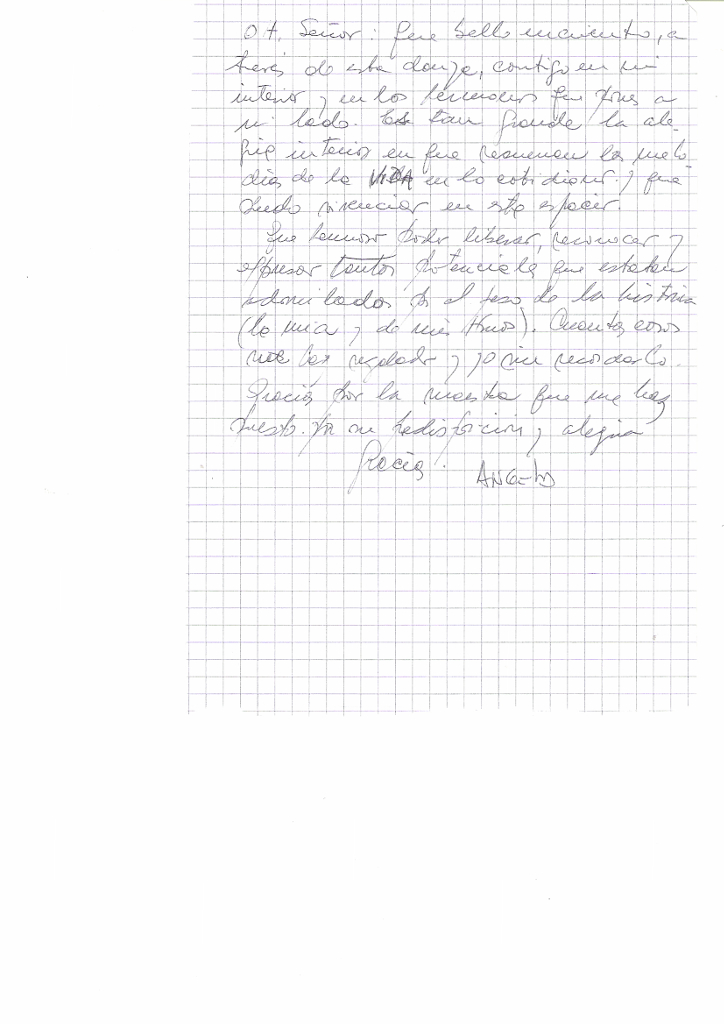 Señor: Que bello encuentro, a
través de esta danza, contigo en mi
interior y en los hermanos que pones a
mi lado. Es tan grande la ale-
gría interior en que resuenan las melo-
días de la VIDA en lo cotidiano y que
puedo vivenciar en este espacio.
Que hermoso poder liberar, reconocer y
expresar tantos potenciales que estaban
por el peso de la historia
(la mía y de mis). Cuantas cosas
nos has regalado y yo sin recordarlo.
Gracias por la maestra que me has
puesto. Por su y alegria
Gracias. ANGELO